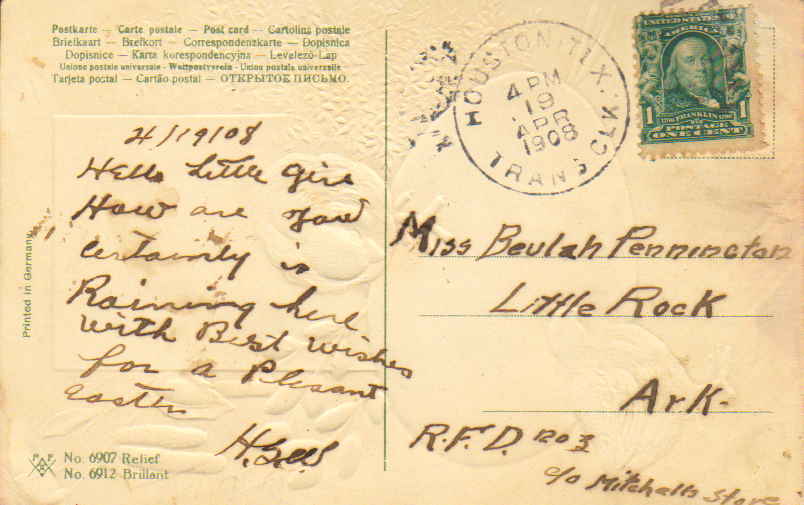 Postkarte — Carte postale — Post card — Cartolina postale
Briefkaart — Brefkort — Correspondenzkarte — Dopisnica
Dopisnice — Karta korespondencyjna — Levelező-Lap
Unione postale universale - Weltpostverein - Union postale universelle
Tarjeta postal — Cartão postal — ОТКРЫТОЕ ПИСЬМО.
4/19/08
Hello Little Girl
How are you
certainly is
Raining here
with Best wishes
for a Plesant
Easter
Printed in Germany
No. 6907 Relief
No. 6912 Brillant
HOUSTON, TEX.
4 PM
19
APR
1908
TRANS CTK
UNITED STATES OF AMERICA
FRANKLIN
1 POSTAGE 1
ONE CENT
Miss Beulah Pennington
Little Rock
Ark.
R.F.D. no 3
c/o Mitchells Store